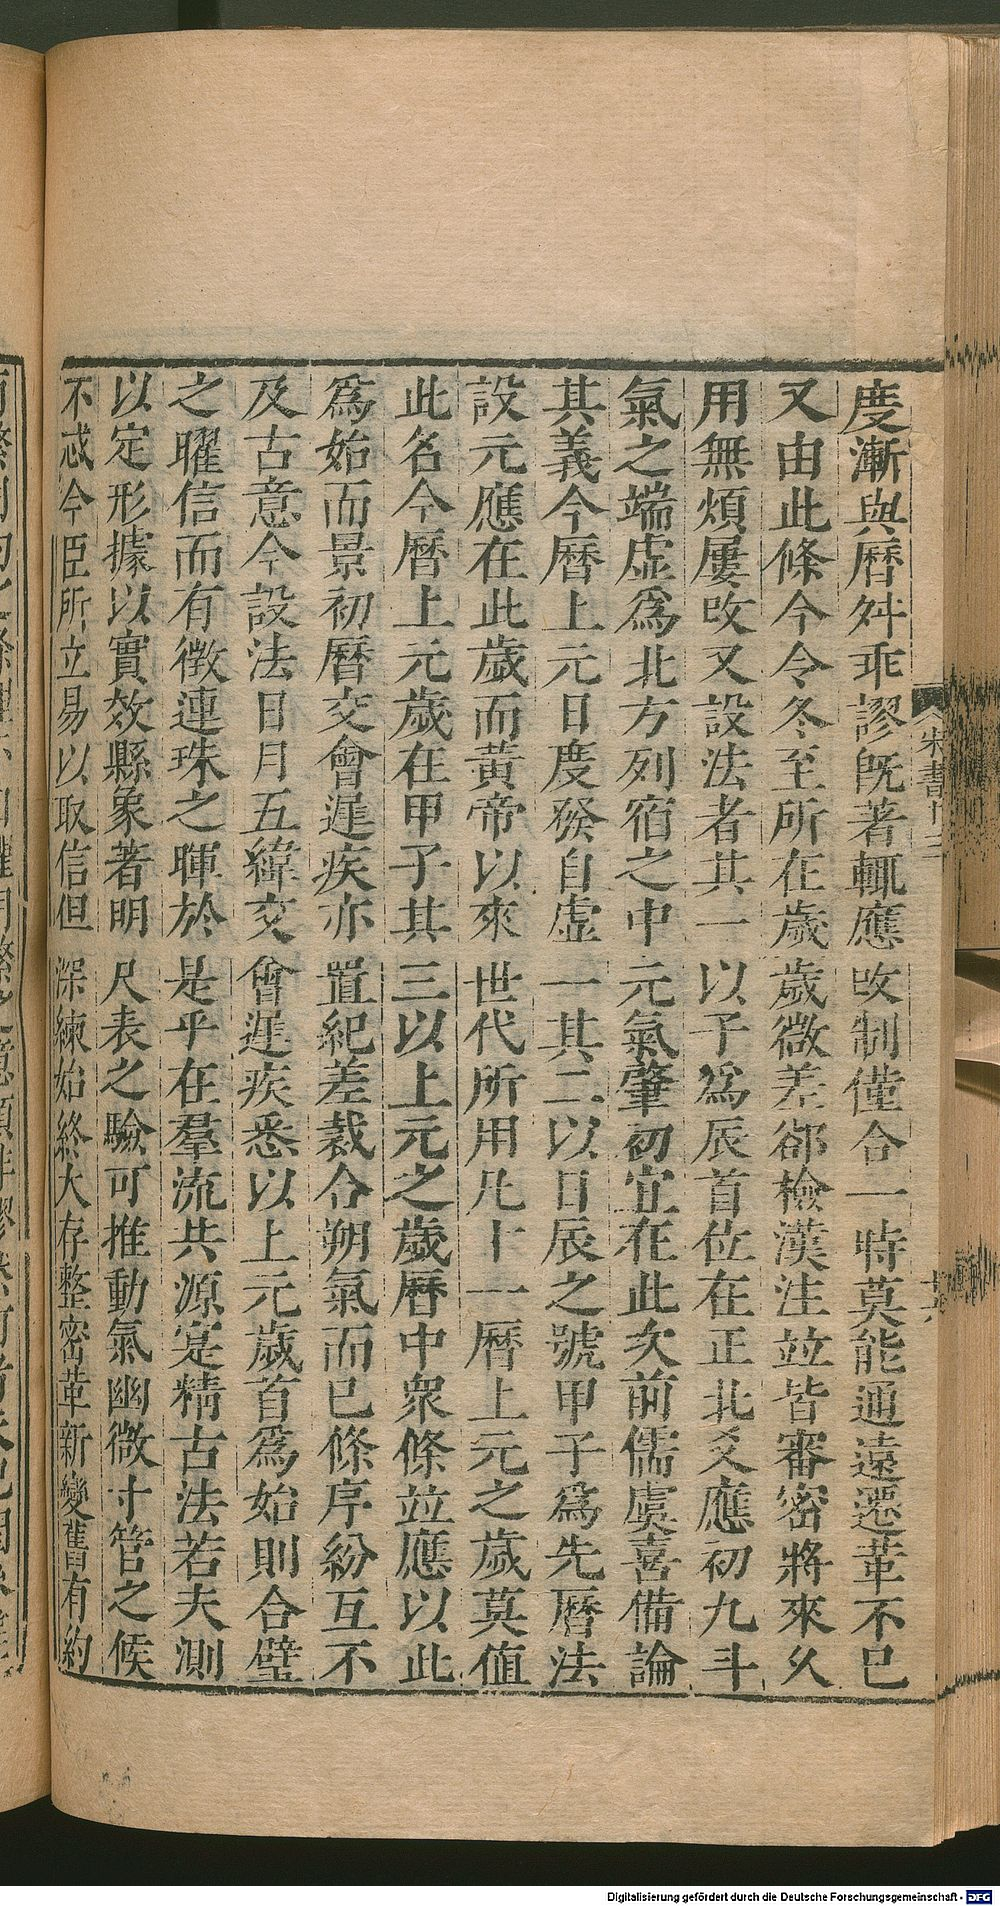 度漸與曆舛乖謬旣著輒應改制僅合一時莫能通遠遷革不已
又由此條今令冬至所在歲歲微差郤檢漢注竝皆審密將來久
用無煩屢改又設法者其一以子爲辰首位在正北爻應初九斗
氣之端虛爲北方列宿之中元氣肇初宜在此次前儒虞喜備論
其義今曆上元日度發自虛一其二以日辰之號甲子爲先曆法
設元應在此歲而黃帝以來世代所用凡十一曆上元之歲莫值
此名今曆上元歲在甲子其三以上元之歲曆中衆條竝應以此
爲始而景初曆交會遲疾亦置紀差裁合朔氣而已條序紛互不
及古意今設法日月五緯交會遲疾悉以上元歲首爲始則合璧
之曜信而有徵連珠之暉於是乎在羣流共源寔精古法若夫測
以定形據以實效縣象著明尺表之驗可推動氣幽微寸管之候
不忒今臣所立易以取信但深練始終大存整密革新變舊有約
宋書十三
Digitalisierung gefördert durch die Deutsche Forschungsgemeinschaft - DFG